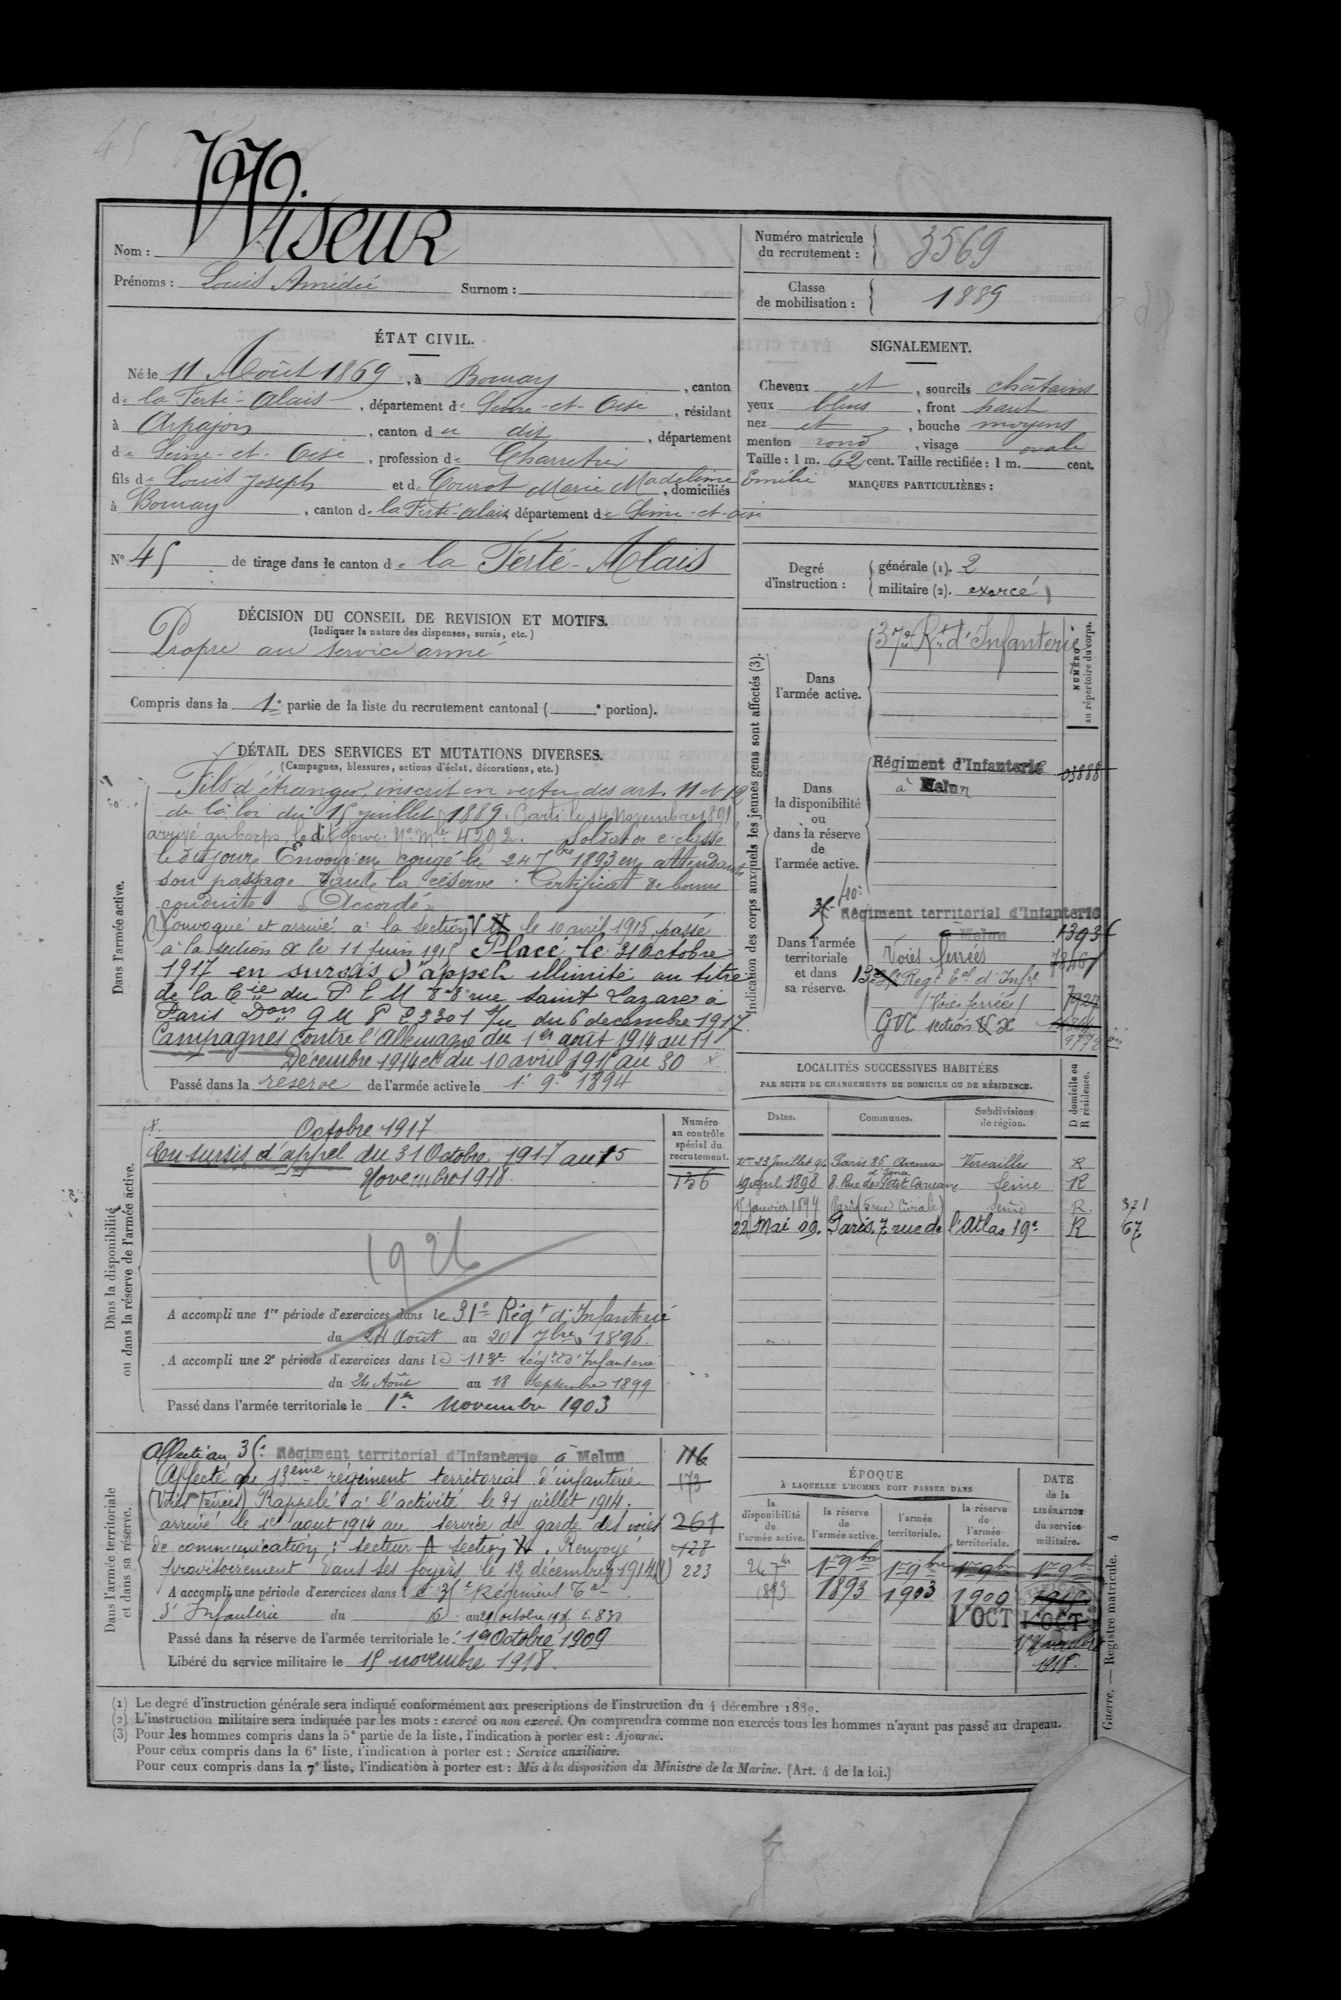 Wiseur
Nom :
Prénoms : Louis Amédée Surnom :
Numéro matricule du recrutement : 3569
Classe de mobilisation : 1889
ÉTAT CIVIL.
Né le 11 Août 1869, à Bouray, canton
de la Ferté-Alais, département de Seine-et-Oise, résidant
à Arpajon, canton du dit, département
de Seine-et-Oise, profession de Charretier
fils de Louis Joseph et de Courot Marie Madeleine Emélie, domiciliés
à Bouray, canton de la Ferté-Alais, département de Seine-et-Oise
N° 45 de tirage dans le canton de la Ferté-Alais
SIGNALEMENT.
Cheveux et, sourcils châtains
yeux bleus, front haut
nez et, bouche moyens
menton rond, visage ovale
Taille : 1 m. 62 cent. Taille rectifiée : 1 m. cent.
MARQUES PARTICULIÈRES :
Degré d'instruction : générale (1). 2
militaire (2). exercé
DÉCISION DU CONSEIL DE REVISION ET MOTIFS.
(Indiquer la nature des dispenses, sursis, etc.)
Propre au service armé
Compris dans la 1e partie de la liste du recrutement cantonal ( e portion).
DÉTAIL DES SERVICES ET MUTATIONS DIVERSES.
(Campagnes, blessures, actions d'éclat, décorations, etc.)
Dans l'armée active.
Fils d'étranger inscrit en vertu des art. 11 et 12
de la loi du 15 juillet 1889. Parti le 14 Novembre 1891
arrivé au corps le dit jour. No Mle 4292. Soldat de 2e classe
le dit jour. Envoyé en congé le 24 7bre 1893 en attendant
son passage dans la réserve. Certificat de bonne
conduite Accordé
Convoqué et arrivé à la section V le 10 avril 1915, passé
à la section X le 11 juin 1915 Placé le 31 Octobre
1917 en sursis d'appel illimité au titre
de la Cie du P L M 88 rue Saint Lazare à
Paris Don G M P E 3301 du 6 décembre 1917
Campagnes contre l'Allemagne du 1er août 1914 au 11
Décembre 1914 et du 10 avril 1915 au 30 x
Passé dans la réserve de l'armée active le 1er 9bre 1894
Indication des corps auxquels les jeunes gens sont affectés (3).
NUMÉRO au répertoire du corps.
Dans l'armée active.
37e Rt d'Infanterie
Dans la disponibilité ou dans la réserve de l'armée active.
Régiment d'Infanterie 03888
à Melun
Dans l'armée territoriale et dans sa réserve.
40e
35e Régiment territorial d'Infanterie
à Melun
Voies ferrées
13e Régt Tal d'Infie
(Voies ferrées)
GVC section X
LOCALITÉS SUCCESSIVES HABITÉES
PAR SUITE DE CHANGEMENTS DE DOMICILE OU DE RÉSIDENCE.
Dates. Communes. Subdivisions de région. D domicile ou R résidence.
Paris 86 Avenue d'Iéna Versailles R
19 avril 1898 8. Rue des Petit Carreaux Seine R
15 janvier 1899 Paris (5 rue Civiale) Seine R. 371
22 Mai 09. Paris. 7 rue de l'Atlas 19e R 67
Dans la disponibilité ou dans la réserve de l'armée active.
Numéro au contrôle spécial du recrutement.
x. Octobre 1917
En sursis d'appel du 31 Octobre 1917 au 15
Novembre 1918.
136
1926
A accompli une 1re période d'exercices dans le 31e Régt d'Infanterie
du 24 Août au 20 7bre 1896.
A accompli une 2e période d'exercices dans le 113e régt d'Infanterie
du 24 Août au 18 Septembre 1899
Passé dans l'armée territoriale le 1er Novembre 1903
Dans l'armée territoriale et dans sa réserve.
Affecté au 35e Régiment territorial d'Infanterie à Melun 116
Affecté au 13ème régiment territorial d'infanterie 173
(Voies ferrées) Rappelé à l'activité le 31 juillet 1914.
arrivé le 1er août 1914 au service de garde des voies 261
de communication : secteur A section V. Renvoyé 127
provisoirement dans ses foyers le 12 décembre 1914 223
A accompli une période d'exercices dans le 35e Régiment Tal
d'Infanterie du au octobre
Passé dans la réserve de l'armée territoriale le 1er Octobre 1909
Libéré du service militaire le 15 novembre 1918.
ÉPOQUE
À LAQUELLE L'HOMME DOIT PASSER DANS
la disponibilité de l'armée active. la réserve de l'armée active. l'armée territoriale. la réserve de l'armée territoriale.
DATE de la LIBÉRATION du service militaire.
24 7bre 1893 1er 9bre 1893 1er 9bre 1903 1er 9bre 1909 1er 9bre
1er OCT 1er OCT
15 Novembre 1918.
(1) Le degré d'instruction générale sera indiqué conformément aux prescriptions de l'instruction du 4 décembre 1889.
(2) L'instruction militaire sera indiquée par les mots : exercé ou non exercé. On comprendra comme non exercés tous les hommes n'ayant pas passé au drapeau.
(3) Pour les hommes compris dans la 5e partie de la liste, l'indication à porter est : Ajourné.
Pour ceux compris dans la 6e liste, l'indication à porter est : Service auxiliaire.
Pour ceux compris dans la 7e liste, l'indication à porter est : Mis à la disposition du Ministre de la Marine. (Art. 4 de la loi.)
Guerre. — Registre matricule. 4